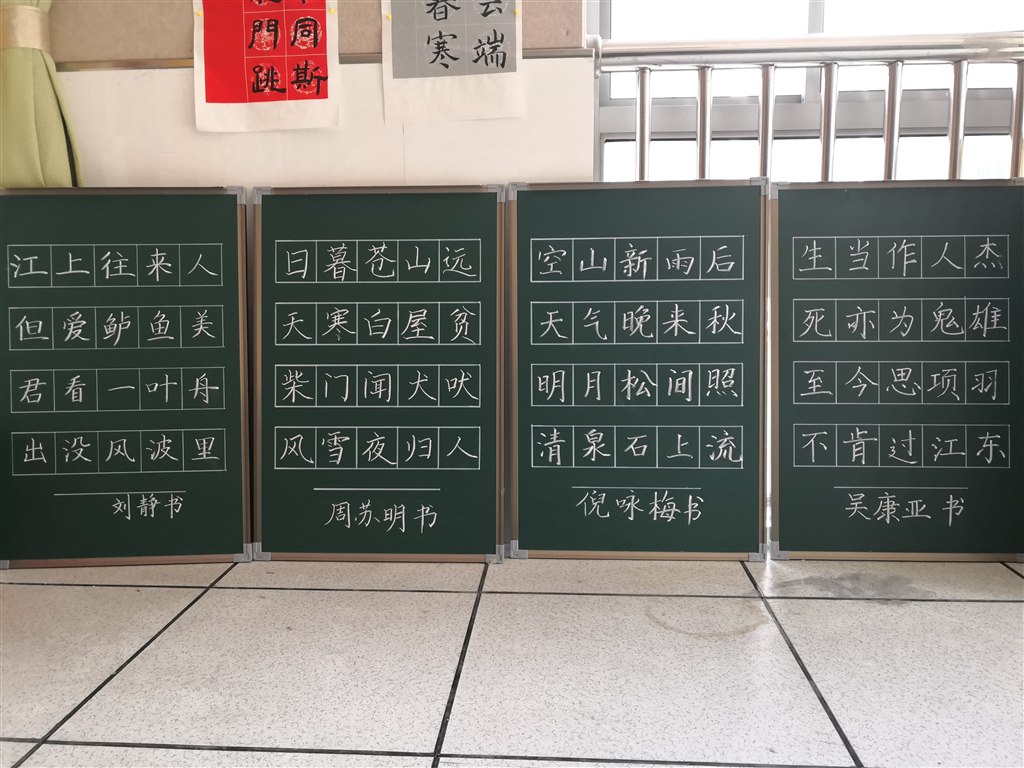 同斯
門跳
云端
春寒
江上往来人
但爱鲈鱼美
君看一叶舟
出没风波里
刘静书
日暮苍山远
天寒白屋贫
柴门闻犬吠
风雪夜归人
周苏明书
空山新雨后
天气晚来秋
明月松间照
清泉石上流
倪咏梅书
生当作人杰
死亦为鬼雄
至今思项羽
不肯过江东
吴康亚书